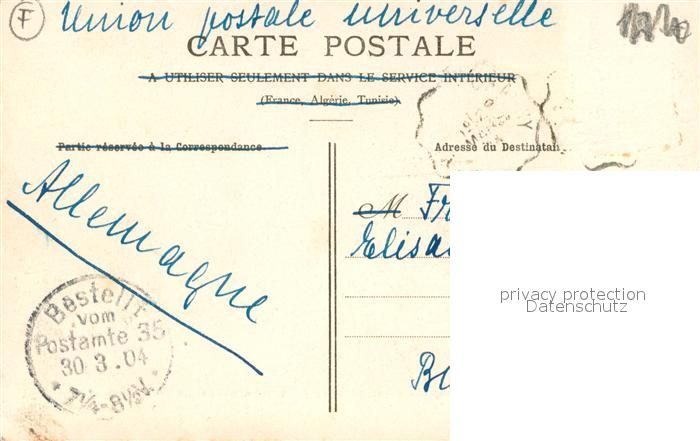 F Union postale universelle
CARTE POSTALE
A UTILISER SEULEMENT DANS LE SERVICE INTÉRIEUR
(France, Algérie, Tunisie)
Partie réservée à la Correspondance
Adresse du Destinatai
M Fr
Elisa
Allemagne
Bestellt
vom
Postamte 35
30.3.04
7¼-8½V.
privacy protection
Datenschutz